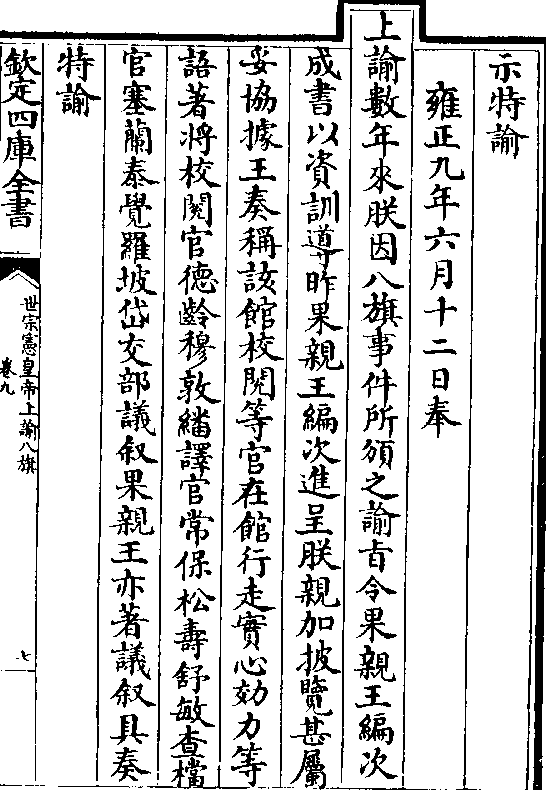 示特諭
雍正九年六月十二日奉
上諭數年來朕因八旗事件所頒之諭旨令果親王編次
成書以資訓導昨果親王編次進呈朕親加披覽甚屬
妥協據王奏稱該館校閱等官在館行走實心効力等
語著將校閱官德齡穆敦繙譯官常保松壽舒敏查檔
官塞蘭泰覺羅坡岱交部議叙果親王亦著議叙具奏
特諭
欽定四庫全書
世宗憲皇帝上諭八旗
卷九
七